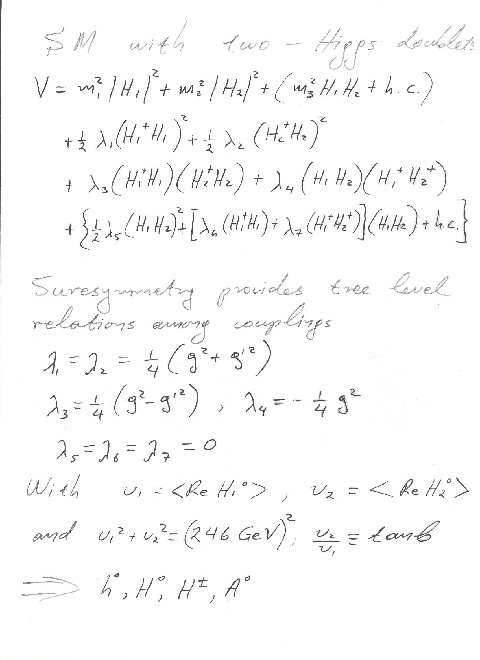 SM with two-Higgs doublets
V = m₁²|H₁|² + m₂²|H₂|² + (m₃² H₁H₂ + h.c.)
+ ½ λ₁(H₁⁺H₁)² + ½ λ₂ (H₂⁺H₂)²
+ λ₃(H₁⁺H₁)(H₂⁺H₂) + λ₄ (H₁H₂)(H₁⁺H₂⁺)
+ {½ λ₅(H₁H₂)² + [λ₆(H₁⁺H₁) + λ₇(H₁⁺H₂⁺)](H₁H₂) + h.c.}
Suresymmetry provides tree level
relations among couplings
λ₁ = λ₂ = ¼ (g² + g'²)
λ₃ = ¼ (g² - g'²) , λ₄ = - ¼ g²
λ₅ = λ₆ = λ₇ = 0
With υ₁ = <Re H₁⁰> , υ₂ = <Re H₂⁰>
and υ₁² + υ₂² = (246 GeV)², υ₂/υ₁ ≡ tanβ
⇒ h⁰, H⁰, H±, A⁰